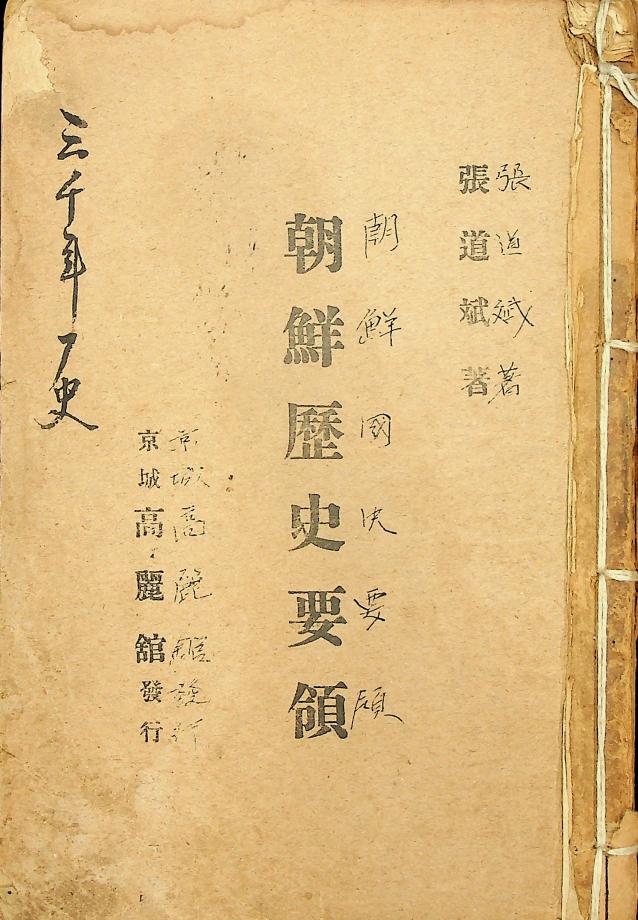 張道斌著
張道斌著
朝鮮國史要領
朝鮮歷史要領
京城高麗舘發行
京城高麗舘發行
三千年ノ史